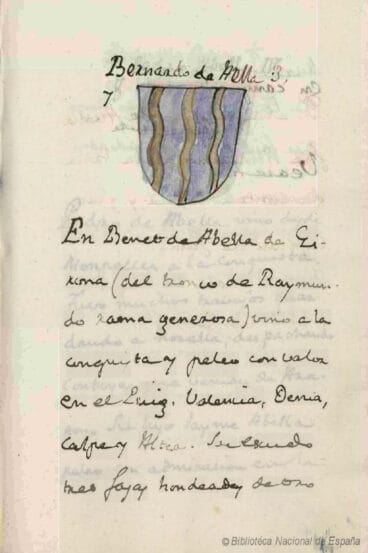 Bernardo de Abella 3,
7
En Benet de Abella de Gi-
rona (del tronco de Raymun-
do rama generosa) vino a la
conquista y peleo con valor
en el Puig, Valencia, Denia,
Calpe y Altea. Su escudo
tres fajas hondeadas de oro
© Biblioteca Nacional de España